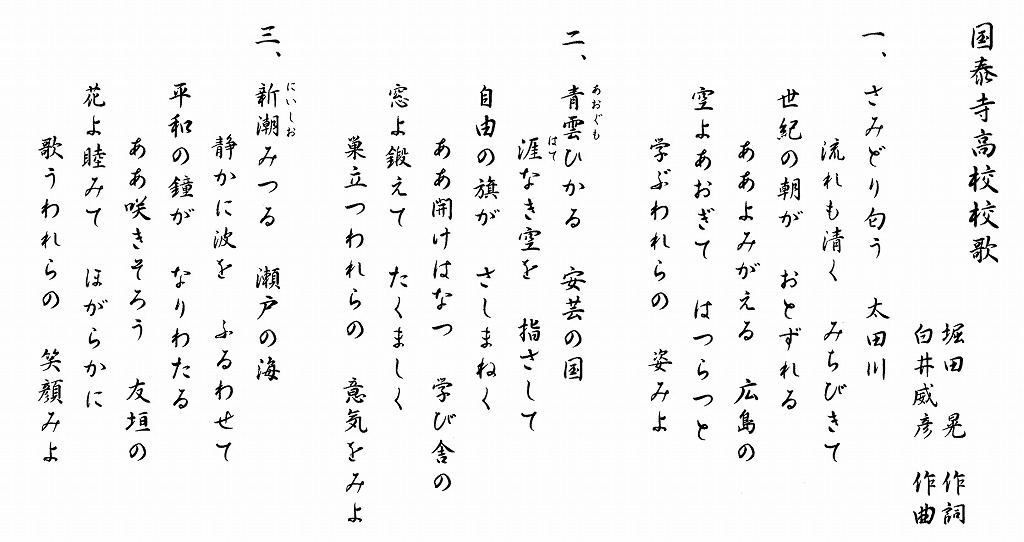 国泰寺高校校歌
堀田 晃 作詞
白井威彦 作曲
一、さみどり匂う 太田川
流れも清く みちびきて
世紀の朝が おとずれる
ああよみがえる 広島の
空よあおぎて はつらつと
学ぶわれらの 姿みよ
二、青雲ひかる 安芸の国
あおぐも
涯なき空を 指さして
はて
自由の旗が さしまねく
ああ開けはなつ 学び舎の
窓よ鍛えて たくましく
巣立つわれらの 意気をみよ
三、新潮みつる 瀬戸の海
にいしお
静かに波を ふるわせて
平和の鐘が なりわたる
ああ咲きそろう 友垣の
花よ睦みて ほがらかに
歌うわれらの 笑顔みよ